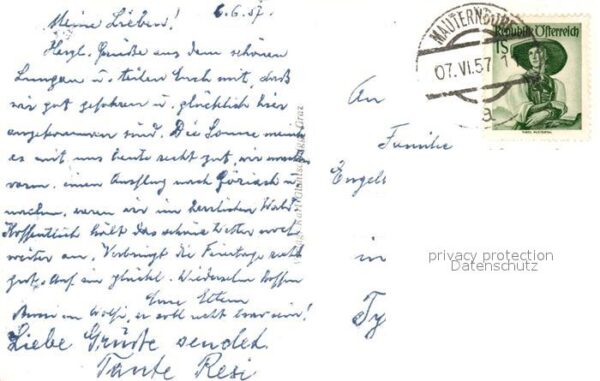 Meine Lieben! 6.6.57.
Herzl. Grüße aus dem schönen
Lungau u. teilen Euch mit, daß
wir gut gefahren u. glücklich hier
angekommen sind. Die Sonne meint
es mit uns heute recht gut, wir machten
vorm. einen Ausflug nach u.
nachm. waren wir im herrlichen Wald
Hoffentlich hält das schöne Wetter noch
weiter an. Verbringt die Feiertage recht
gut. Auf ein glückl. Wiedersehn hoffen
Eure Eltern
er soll recht brav sein!
Liebe Grüße sendet
Tante Resi
An
Familie
Engel
in
Ty
MAUTERNDORF
07.VI.57
a
Republik Österreich
1S
privacy protection
Datenschutz